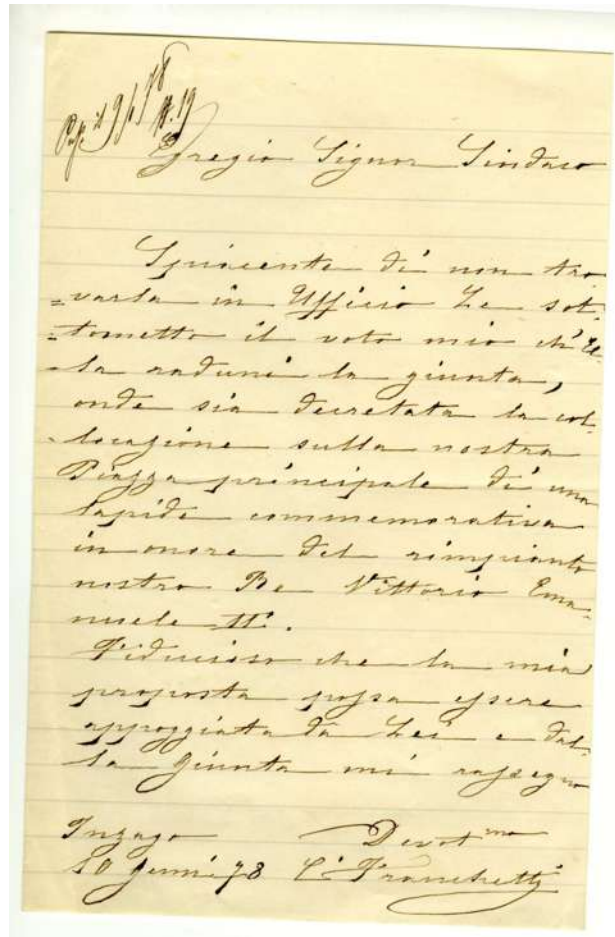 N. 19
Egregio Signor Sindaco
Spiacente di non tro
=varla in Ufficio Le sot
=tometto il voto mio ch'El
-la raduni la giunta,
onde sia decretata la col
-locazione sulla nostra
Piazza principale di una
lapide commemorativa
in onore del rimpianto
nostro Re Vittorio Ema-
nuele II.
Fiducioso che la mia
proposta possa essere
appoggiata da Lei e dal
la Giunta mi rassegno
Inzago Devot.mo
10 Genn: 78 Franchetti